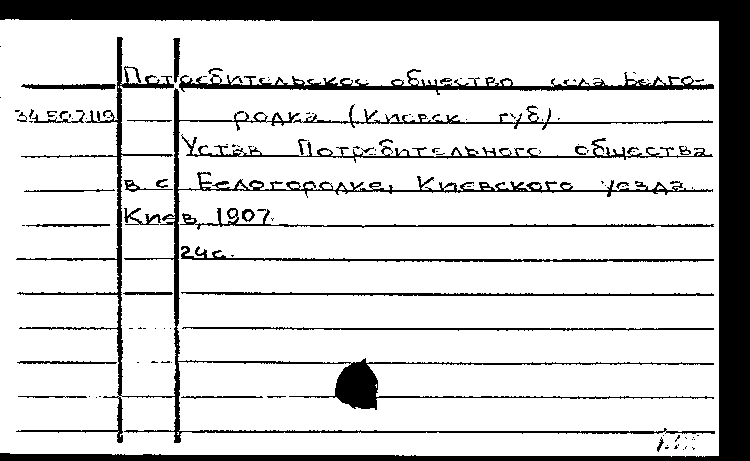 Потребительское общество села Белго-
34.50.7.119 родка (Киевск. губ).
Устав Потребительного общества
в с Белогородке, Киевского уезда.
Киев, 1907.
24с.